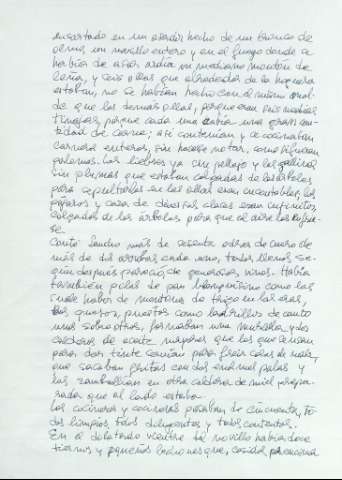 ensartado en un asador hecho de un tronco de
olmo, un novillo entero; y en el fuego donde se
había de asar ardía un mediano montón de
leña, y seis ollas que alrededor de la hoguera
estaban, no se habían hecho con el mismo mol-
de que las demás ollas, porque eran seis medias
tinajas, porque cada una cabía una gran can-
tidad de carne; así contenían y se cocinaban
carneros enteros, sin hacerse notar, como si fueran
palominos. Las liebres ya sin pellejo y las gallinas
sin plumas que estaban colgadas de los árboles
para sepultarlas en las ollas eran incontables, los
pájaros y caza de diversas clases eran infinitos
colgados de los árboles para que el aire los enfria-
se.
Contó Sancho más de sesenta odres de cuero de
más de dos arrobas cada uno, todos llenos se-
gún después pareció, de generosos vinos. Había
también pilas de pan blanquísimo como las
suele haber de montones de trigo en las eras,
los quesos, puestos como ladrillos de canto
unos sobre otros, formaban una muralla, y dos
calderas de aceite mayores que las que se usan
para dar tinte servían para freír cosas de masa,
que sacaban fritas con dos enormes palas y
las zambullían en otra caldera de miel prepa-
rada que al lado estaba.
Los cocineros y cocineras pasaban de cincuenta, to-
dos limpios, todos diligentes y todos contentos.
En el dilatado vientre del novillo había doce
tiernos y pequeños lechones que, cosidos por encima